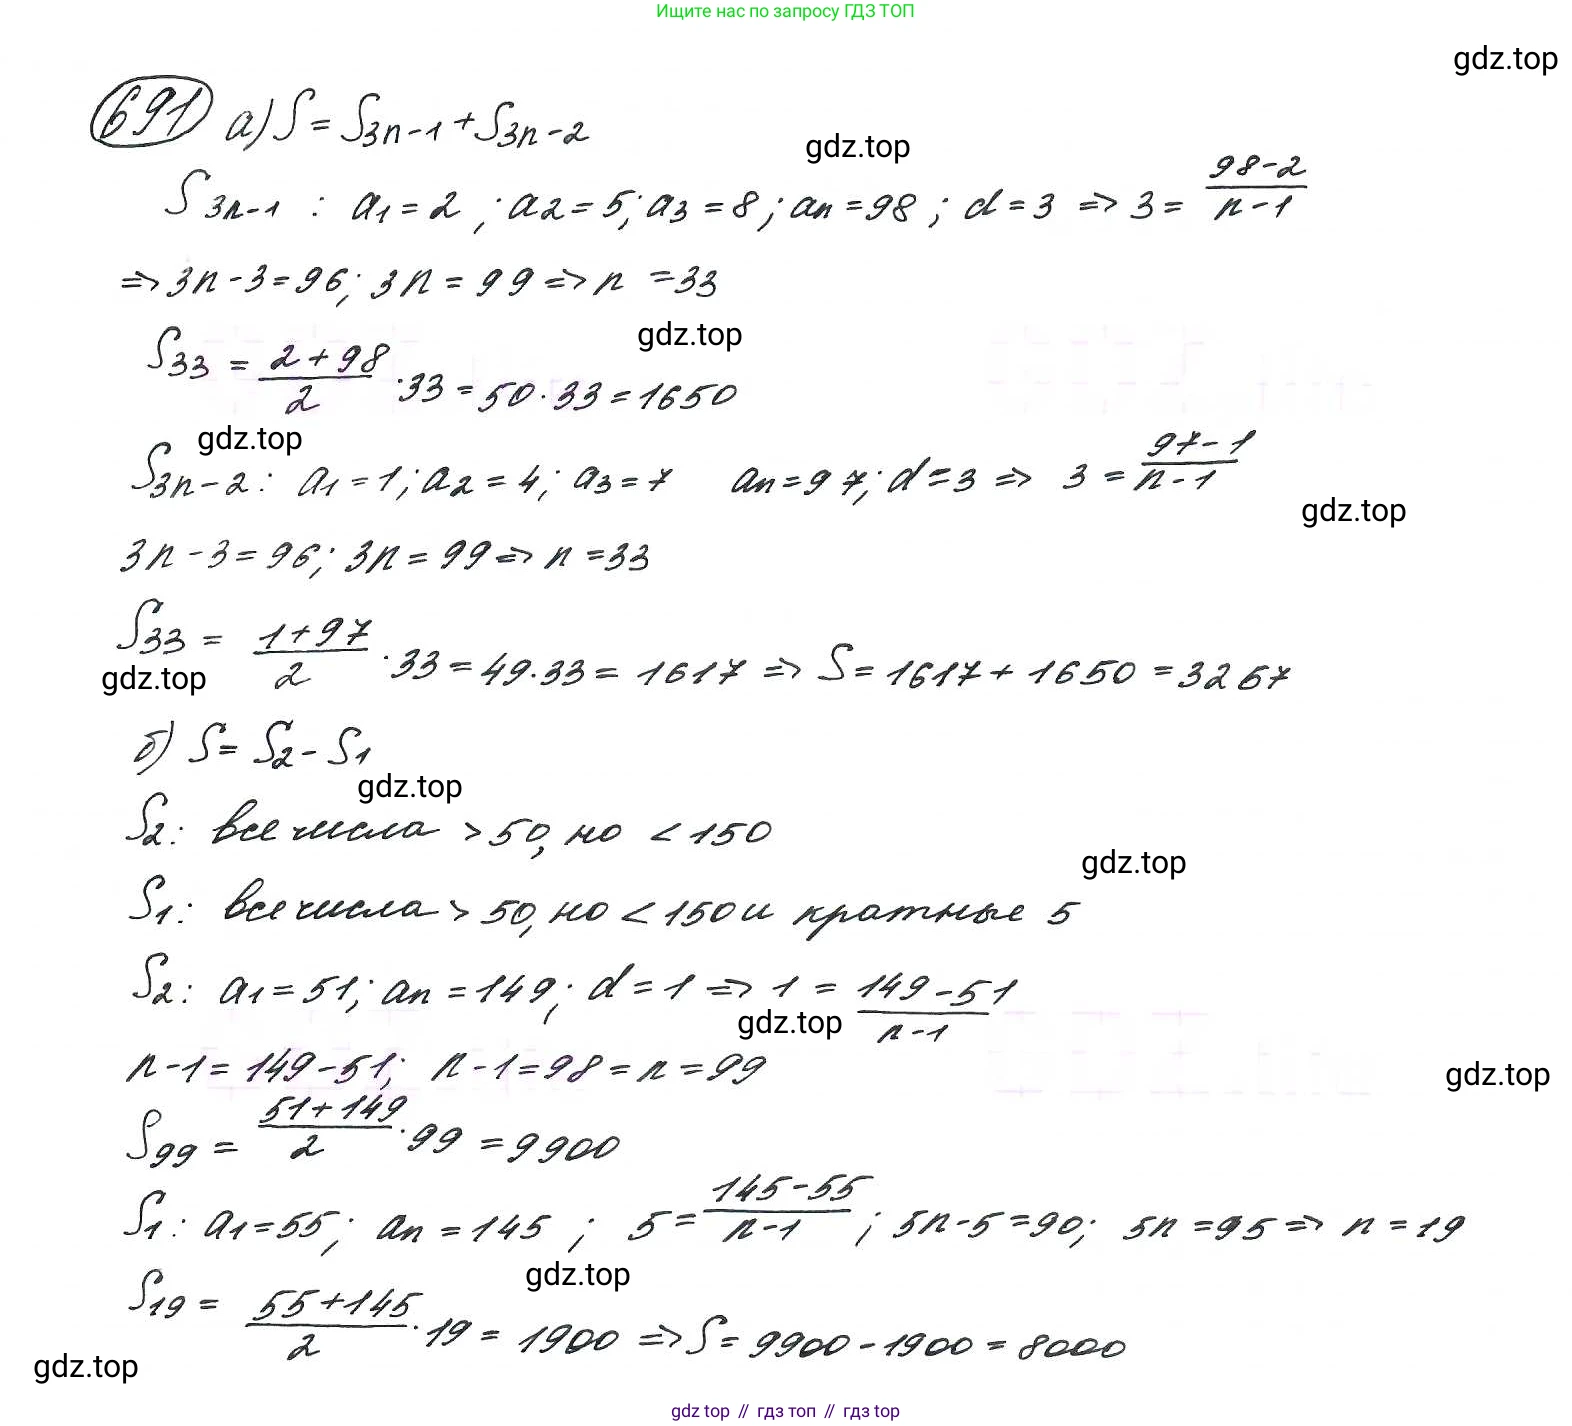 Ищите нас по запросу ГДЗ ТОП
gdz.top
691 а) S = S3n-1 + S3n-2
gdz.top
S3n-1 : a1 = 2 ; a2 = 5; a3 = 8 ; an = 98 ; d = 3 => 3 = (98-2)/(n-1)
=> 3n - 3 = 96; 3n = 99 => n = 33
gdz.top
S33 = (2+98)/2 · 33 = 50 · 33 = 1650
gdz.top
S3n-2 : a1 = 1; a2 = 4; a3 = 7 an = 97; d = 3 => 3 = (97-1)/(n-1)
gdz.top
3n - 3 = 96; 3n = 99 => n = 33
S33 = (1+97)/2 · 33 = 49 · 33 = 1617 => S = 1617 + 1650 = 3267
gdz.top
б) S = S2 - S1
gdz.top
S2: все числа > 50, но < 150
gdz.top
S1: все числа > 50, но < 150 и кратные 5
S2: a1 = 51; an = 149; d = 1 => 1 = (149-51)/(n-1)
gdz.top
n - 1 = 149 - 51; n - 1 = 98 = n = 99
gdz.top
S99 = (51+149)/2 · 99 = 9900
S1: a1 = 55; an = 145 ; 5 = (145-55)/(n-1) ; 5n - 5 = 90; 5n = 95 => n = 19
gdz.top
S19 = (55+145)/2 · 19 = 1900 => S = 9900 - 1900 = 8000
gdz.top
gdz top // гдз топ // гдз top